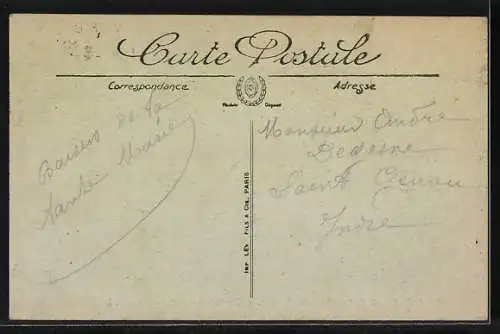 Carte Postale
Correspondance
Adresse
Modèle Déposé
Baisers de la
IMP. LÉVY FILS & Cie, PARIS
Monsieur André
Saint Genou
Indre